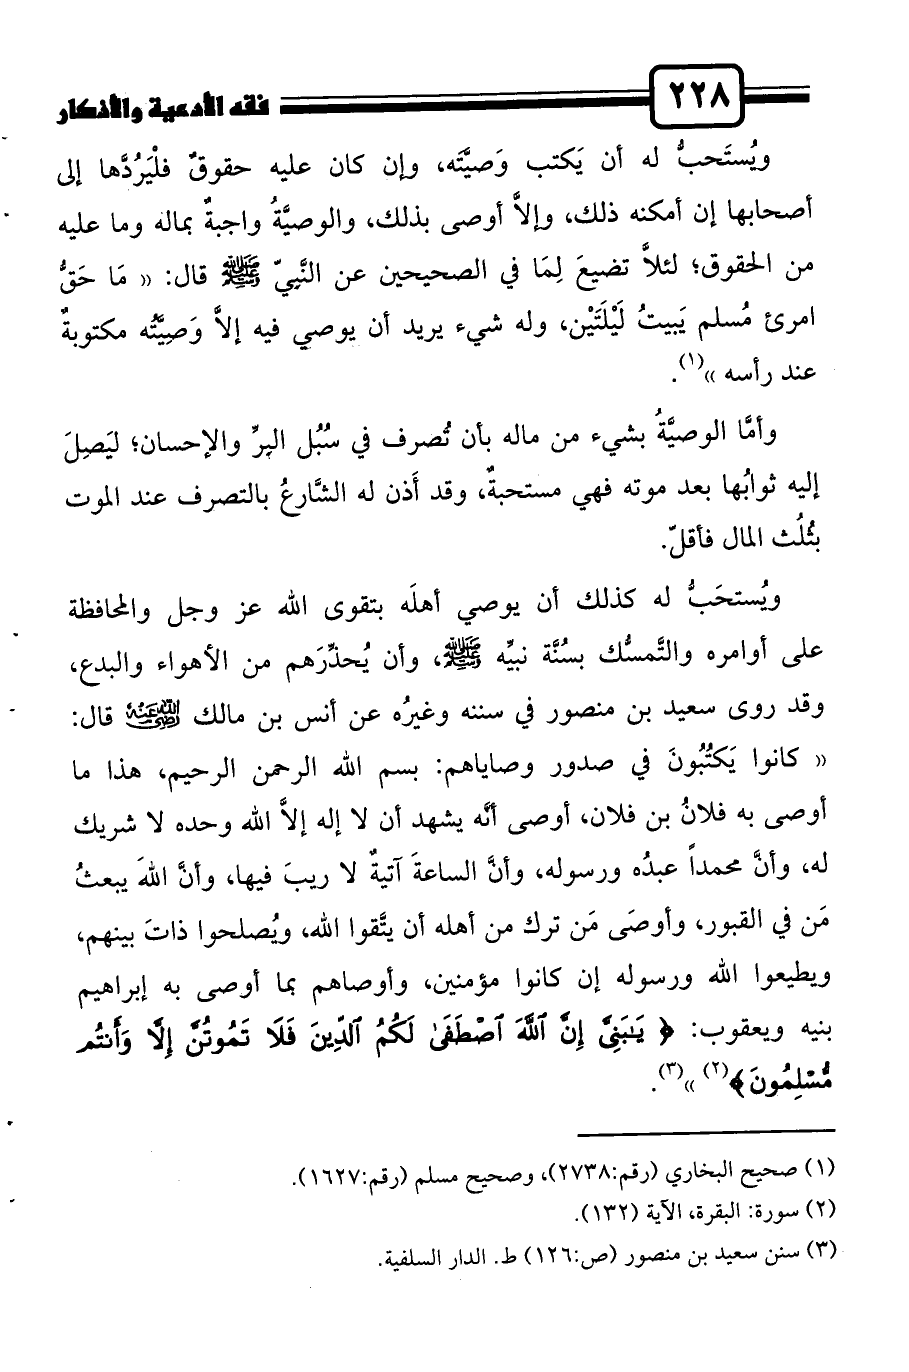 ٢٢٨ فقه الأدعية والأذكار
ويُستَحبُّ له أن يَكتب وَصيَّتَه، وإن كان عليه حقوقٌ فلْيَرُدَّها إلى
أصحابها إن أمكنه ذلك، وإلاَّ أوصى بذلك، والوصيَّةُ واجبةٌ بماله وما عليه
من الحقوق؛ لئلاَّ تضيعَ لِمَا في الصحيحين عن النَّبِيّ ﷺ قال: « مَا حَقُّ
امرئ مُسلم يَبيتُ لَيْلَتَيْن، وله شيء يريد أن يوصي فيه إلاَّ وَصِيَّتُه مكتوبةٌ
عند رأسه »(١).
وأمَّا الوصيَّةُ بشيء من ماله بأن تُصرف في سُبُل البِرِّ والإحسان؛ ليَصِلَ
إليه ثوابُها بعد موته فهي مستحبةٌ، وقد أَذن له الشَّارعُ بالتصرف عند الموت
بثُلُث المال فأقلّ.
ويُستحَبُّ له كذلك أن يوصي أهلَه بتقوى الله عز وجل والمحافظة
على أوامره والتَّمسُّك بسُنَّة نبيِّه ﷺ، وأن يُحذِّرَهم من الأهواء والبدع،
وقد روى سعيد بن منصور في سننه وغيرُه عن أنس بن مالك رضي الله عنه قال:
« كانوا يَكتُبُونَ في صدور وصاياهم: بسم الله الرحمن الرحيم، هذا ما
أوصى به فلانُ بن فلان، أوصى أنَّه يشهد أن لا إله إلاَّ الله وحده لا شريك
له، وأنَّ محمداً عبدُه ورسوله، وأنَّ الساعةَ آتيةٌ لا ريبَ فيها، وأنَّ اللهَ يبعثُ
مَن في القبور، وأوصَى مَن ترك من أهله أن يتَّقوا الله، ويُصلحوا ذاتَ بينهم،
ويطيعوا الله ورسوله إن كانوا مؤمنين، وأوصاهم بما أوصى به إبراهيم
بنيه ويعقوب: ﴿ يَـٰبَنِىَّ إِنَّ ٱللَّهَ ٱصْطَفَىٰ لَكُمُ ٱلدِّينَ فَلَا تَمُوتُنَّ إِلَّا وَأَنتُم
مُّسْلِمُونَ﴾(٢) »(٣).
(١) صحيح البخاري (رقم:٢٧٣٨)، وصحيح مسلم (رقم:١٦٢٧).
(٢) سورة: البقرة، الآية (١٣٢).
(٣) سنن سعيد بن منصور (ص:١٢٦) ط. الدار السلفية.